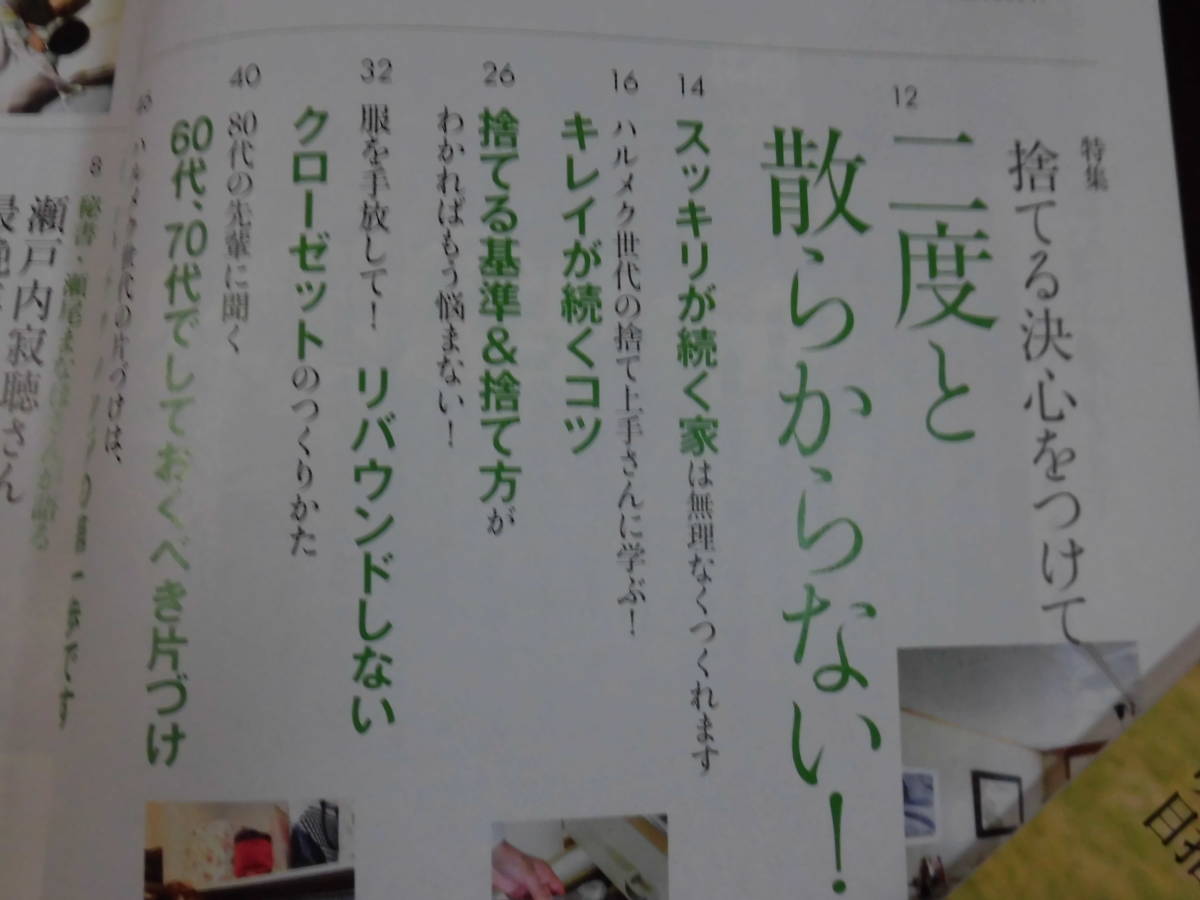 特集
捨てる決心をつけて
12
二度と
散らからない！
14
スッキリが続く家は無理なくつくれます
16
ハルメク世代の捨て上手さんに学ぶ！
キレイが続くコツ
26
捨てる基準&捨て方が
わかればもう悩まない！
32
服を手放して！ リバウンドしない
クローゼットのつくりかた
40
80代の先輩に聞く
60代、70代でしておくべき片づけ
ハルメク世代の片づけは、
8
秘書・瀬尾まなほさんが語る
瀬戸内寂聴さん